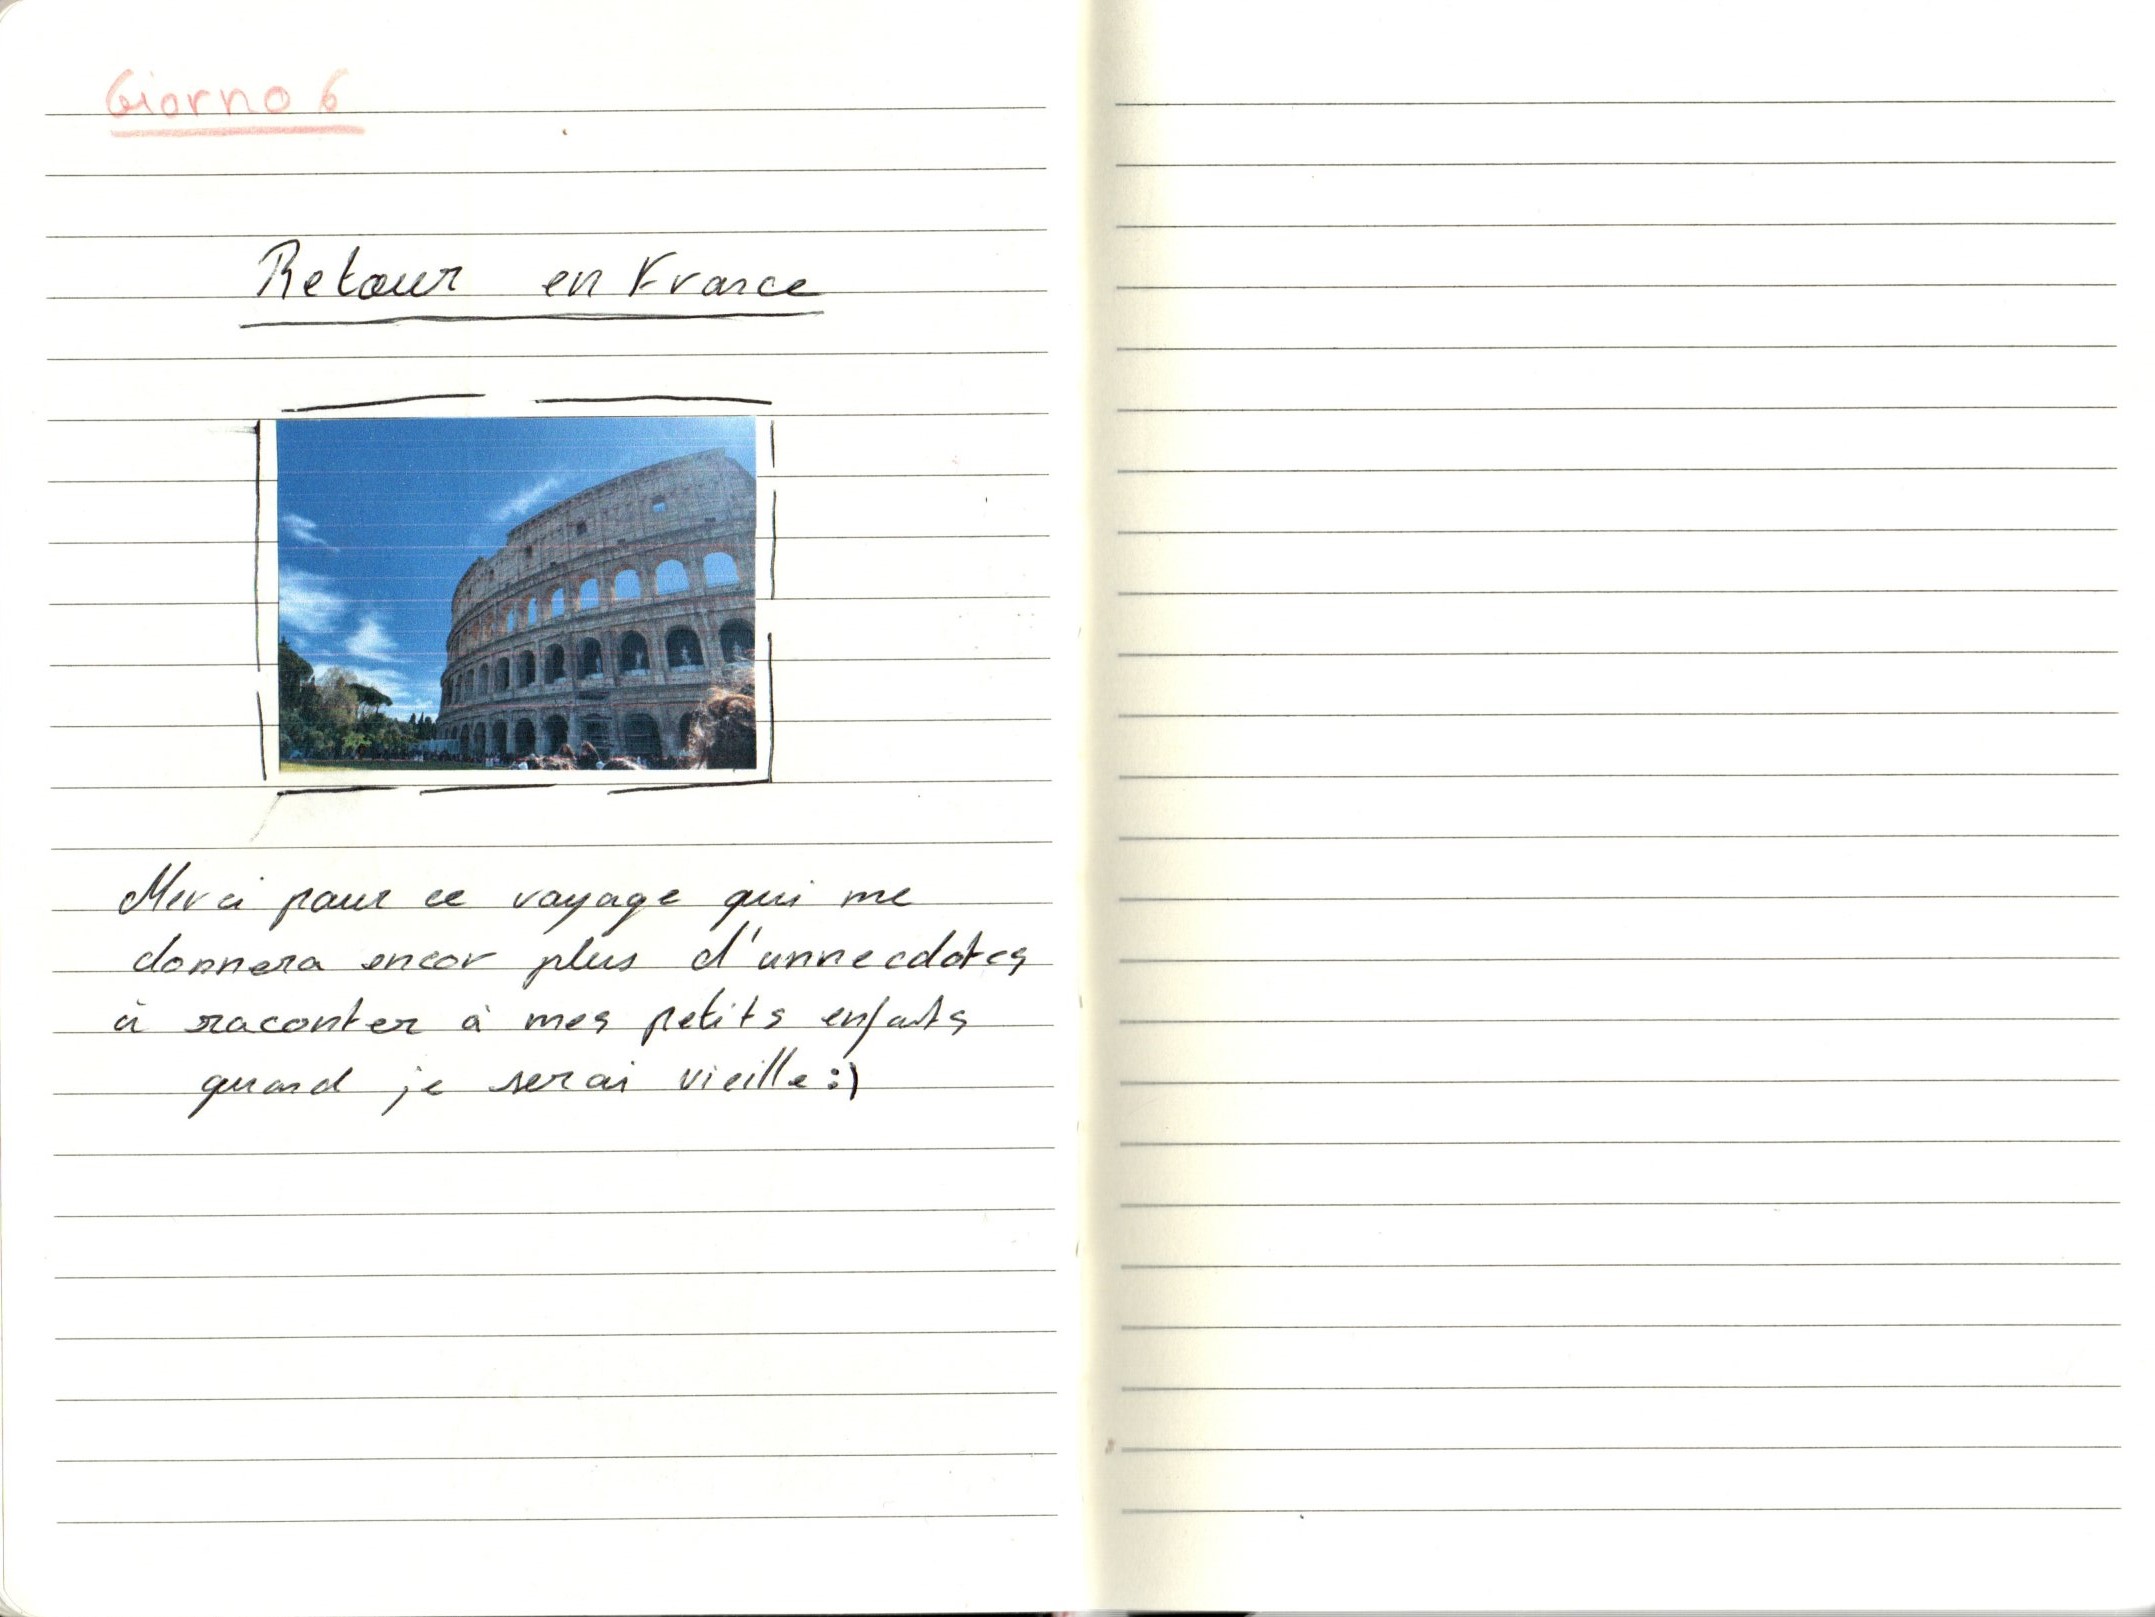 Giorno 6
Retour en France
Merci pour ce voyage qui me
donnera encor plus d'annecdotes
à raconter à mes petits enfants
quand je serai vieille :)